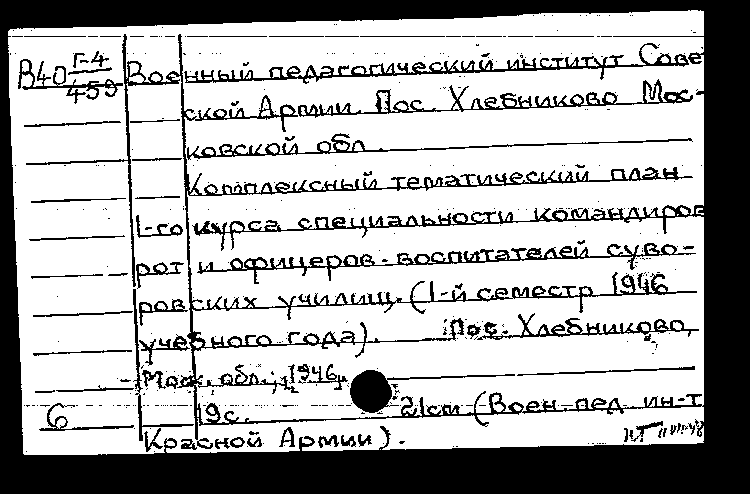 В40 Г-4 Военный педагогический институт Сове
459
ской Армии. Пос. Хлебниково Мос-
ковской обл.
Комплексный тематический план
1-го курса специальности командиров
рот и офицеров-воспитателей суво-
ровских училищ. (1-й семестр 1946
учебного года). Пос. Хлебниково,
Моск. обл., 1946.
6 19с. 21см (Воен. пед. ин-т
Красной Армии).